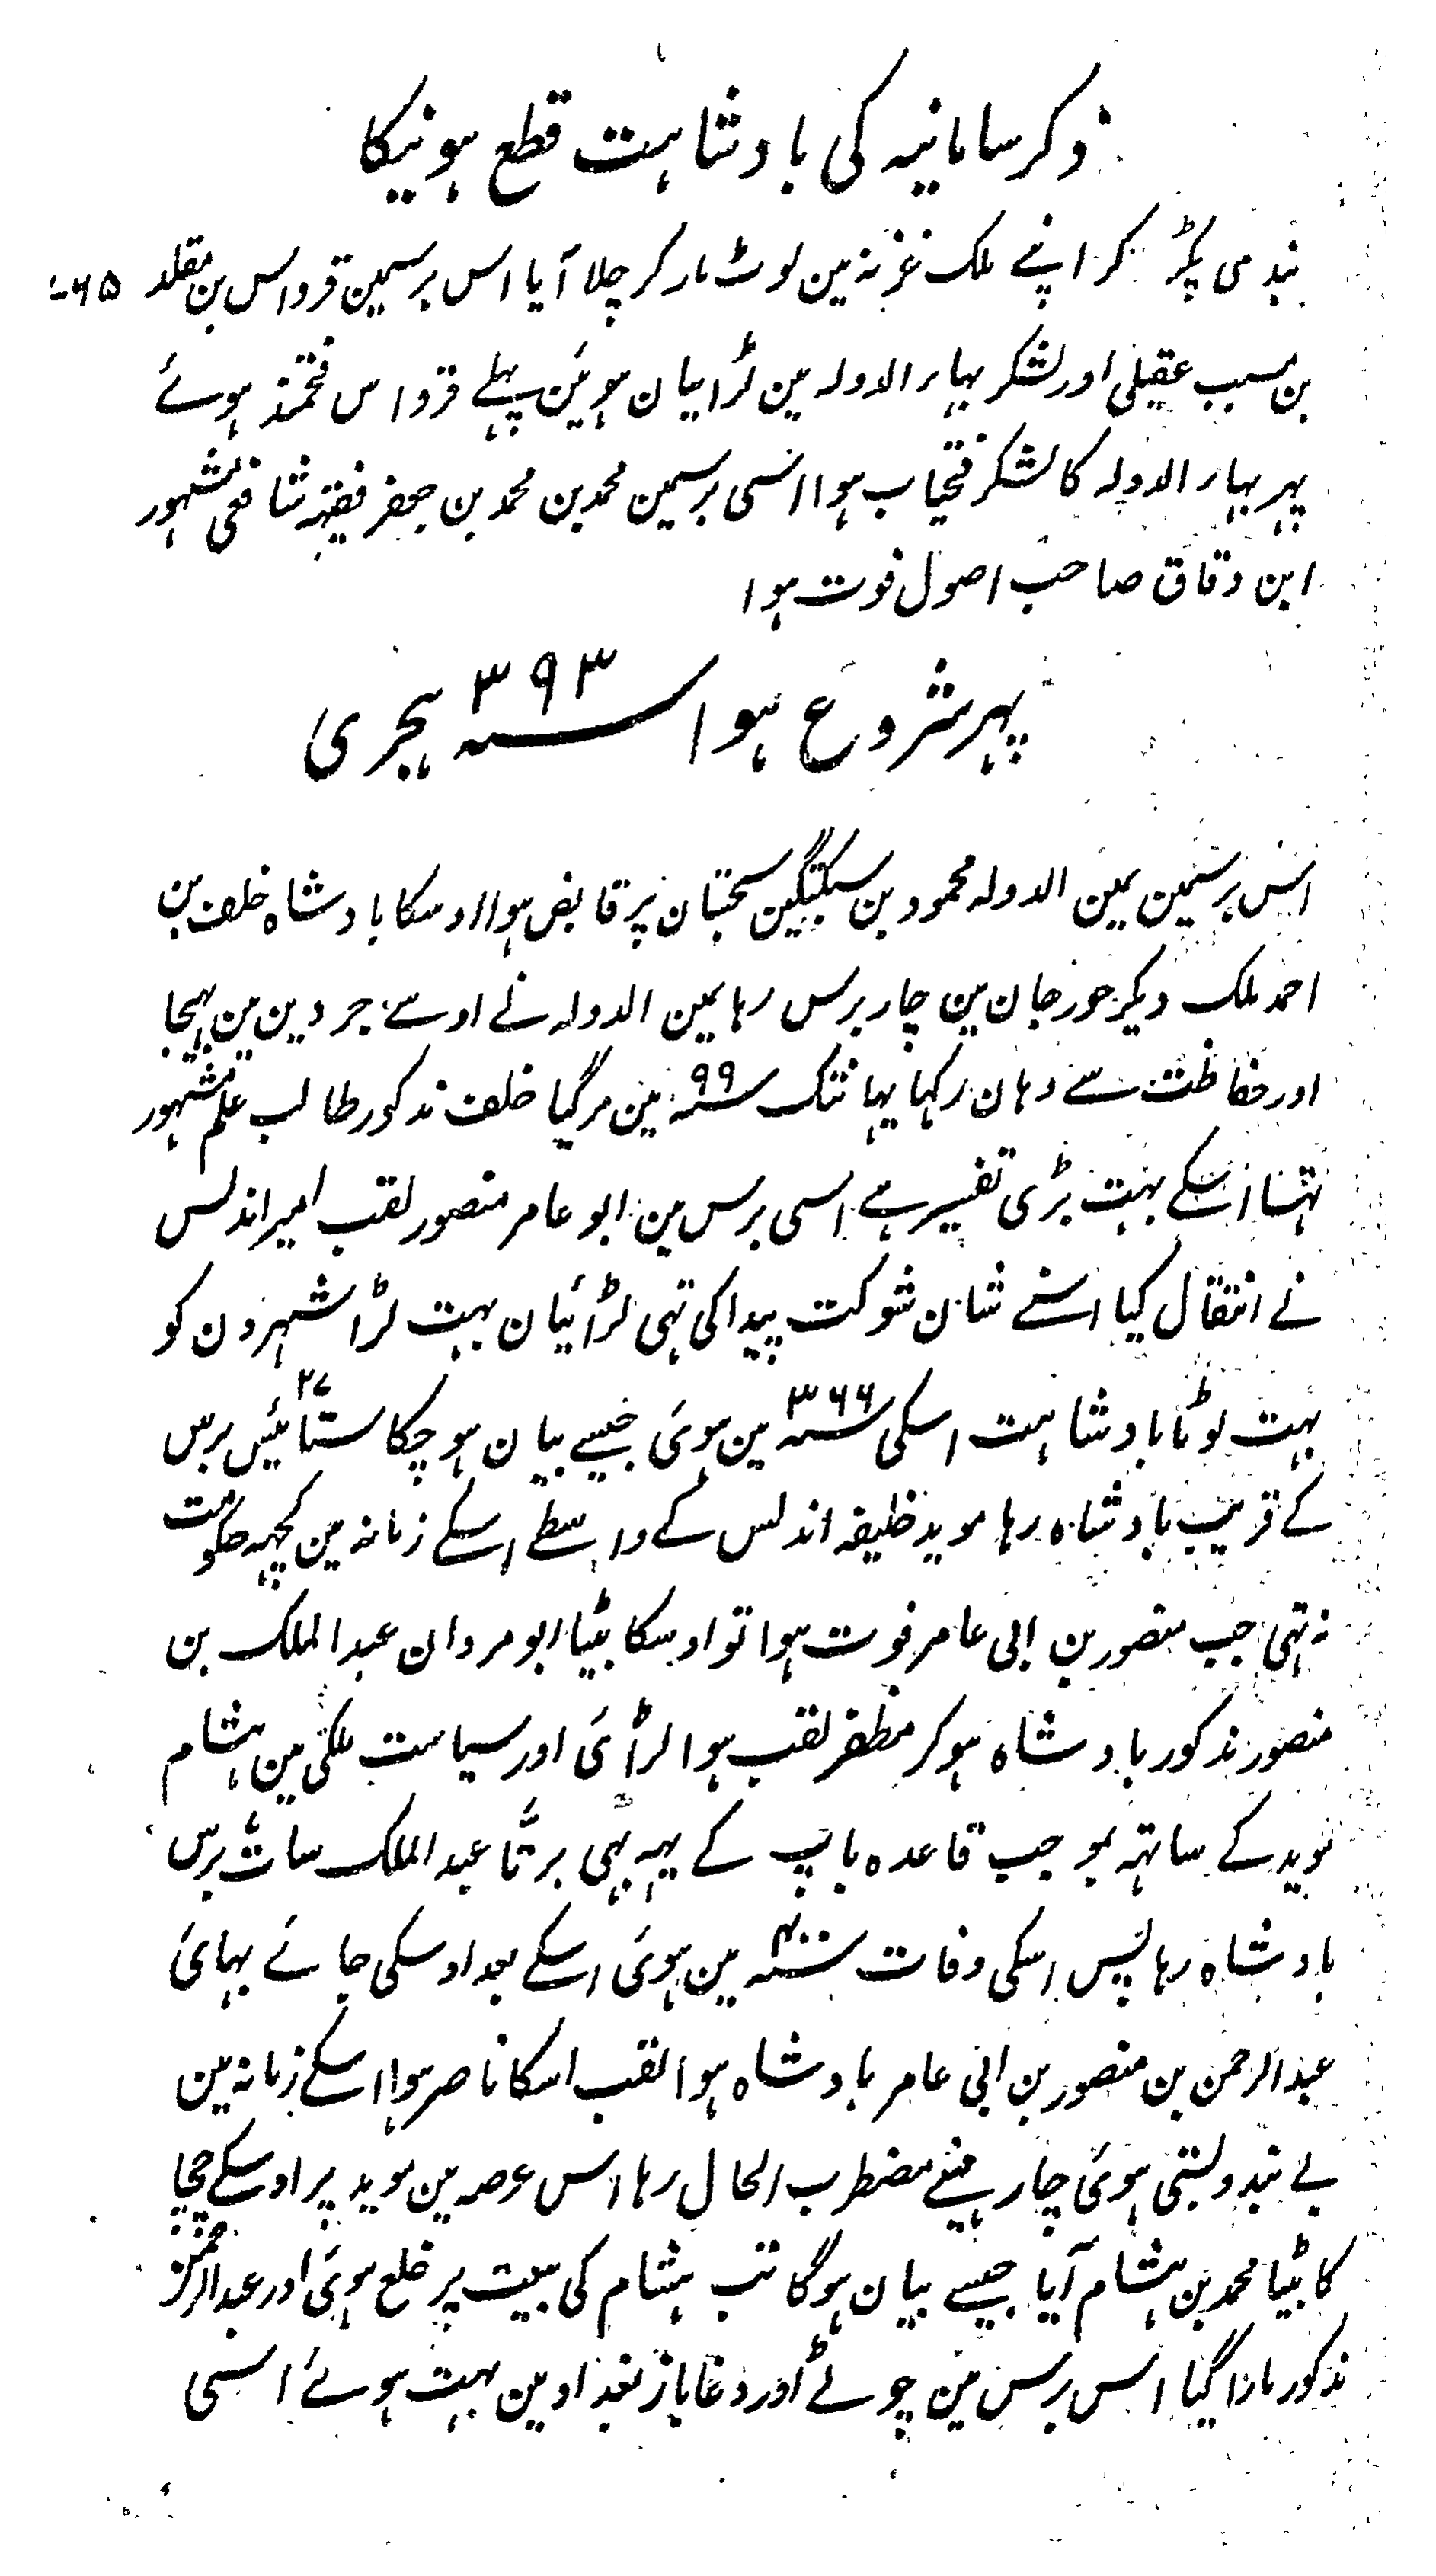 ذکر سامانیہ کی بادشاہت قطع ہونیکا
بندی پکڑ کر اپنے ملک غزنہ مین لوٹ مار کر چلا آیا اس برسمین قرواس بن مقلد
بن مسیب عقیلی اور لشکر بہار الدولہ مین لڑائیان ہوئین پہلے قرواس فتحمند ہوئے
پہر بہار الدولہ کا لشکر فتحیاب ہوا اسی برسمین محمد بن محمد بن جعفر فقیہ شافعی مشہور
ابن دقاق صاحب اصول فوت ہوا
پہر شروع ہوا سنہ ۳۹۳ ہجری
اس برسمین یمین الدولہ محمود بن سبکتگین سجستان پر قابض ہوا اوسکا بادشاہ خلف بن
احمد ملک دیکر جورجان مین چار برس رہا یمین الدولہ نے اوسے جردین مین بہیجا
اور حفاظت سے وہان رکہا یہانتک سنہ ۹۹ مین مر گیا خلف مذکور طالب علم مشہور
تہا اسکے بہت بڑی تفسیر ہے اسی برس مین ابو عامر منصور لقب امیر اندلس
نے انتقال کیا اسنے شان شوکت پیدا کی تہی لڑائیان بہت لڑا شہرون کو
بہت لوٹا بادشاہت اسکی سنہ ۳۶۶ مین ہوئی جیسے بیان ہو چکا ستائیس ۲۷ برس
کے قریب بادشاہ رہا موید خلیفہ اندلس کے واسطے اسکے زمانہ مین کچہہ حکومت
نہ تہی جب منصور بن ابی عامر فوت ہوا تو اوسکا بیٹا ابو مروان عبد الملک بن
منصور مذکور بادشاہ ہو کر مظفر لقب ہوا لڑائی اور سیاست ملکی مین ہشام
موید کے ساتہہ بموجب قاعدہ باپ کے یہہ بہی برتا عبد الملک سات برس
بادشاہ رہا پس اسکی وفات سنہ ۴۰۰ مین ہوئی اسکے بعد اوسکی جائے بہائی
عبد الرحمن بن منصور بن ابی عامر بادشاہ ہوا لقب اسکا ناصر ہوا اسکے زمانہ مین
بے بندوبستی ہوئی چار مہینے مضطرب الحال رہا اس عرصہ مین موید پر اوسکے چچا
کا بیٹا محمد بن ہشام آیا جیسے بیان ہوگا تب ہشام کی بیعت پر خلع ہوئی اور عبد الرحمن
مذکور مارا گیا اس برس مین چوٹے اور دغا باز بغداد مین بہت ہوئے اسی